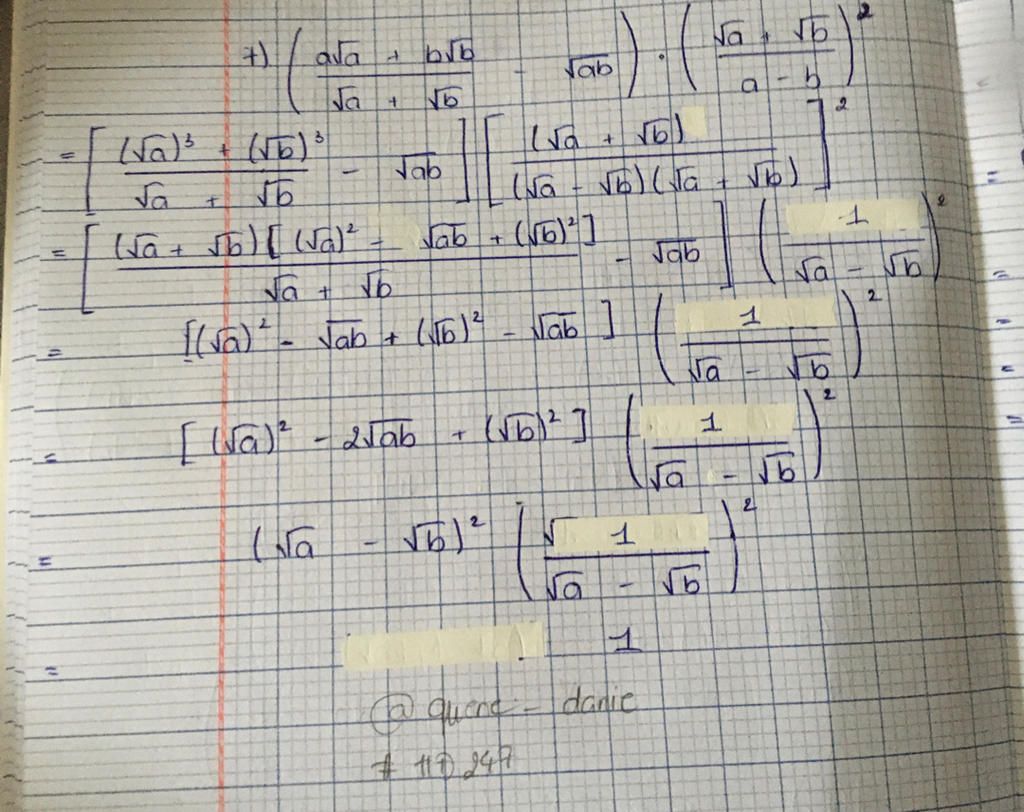 7) ( (a√a + b√b)/(√a + √b) - √ab ) · ( (√a + √b)/(a - b) )²
= [ ((√a)³ + (√b)³)/(√a + √b) - √ab ] [ (√a + √b)/((√a - √b)(√a + √b)) ]²
= [ (√a + √b)[(√a)² - √ab + (√b)²]/(√a + √b) - √ab ] ( 1/(√a - √b) )²
= [(√a)² - √ab + (√b)² - √ab ] ( 1/(√a - √b) )²
= [ (√a)² - 2√ab + (√b)² ] ( 1/(√a - √b) )²
= (√a - √b)² ( √1/(√a - √b) )²
= 1